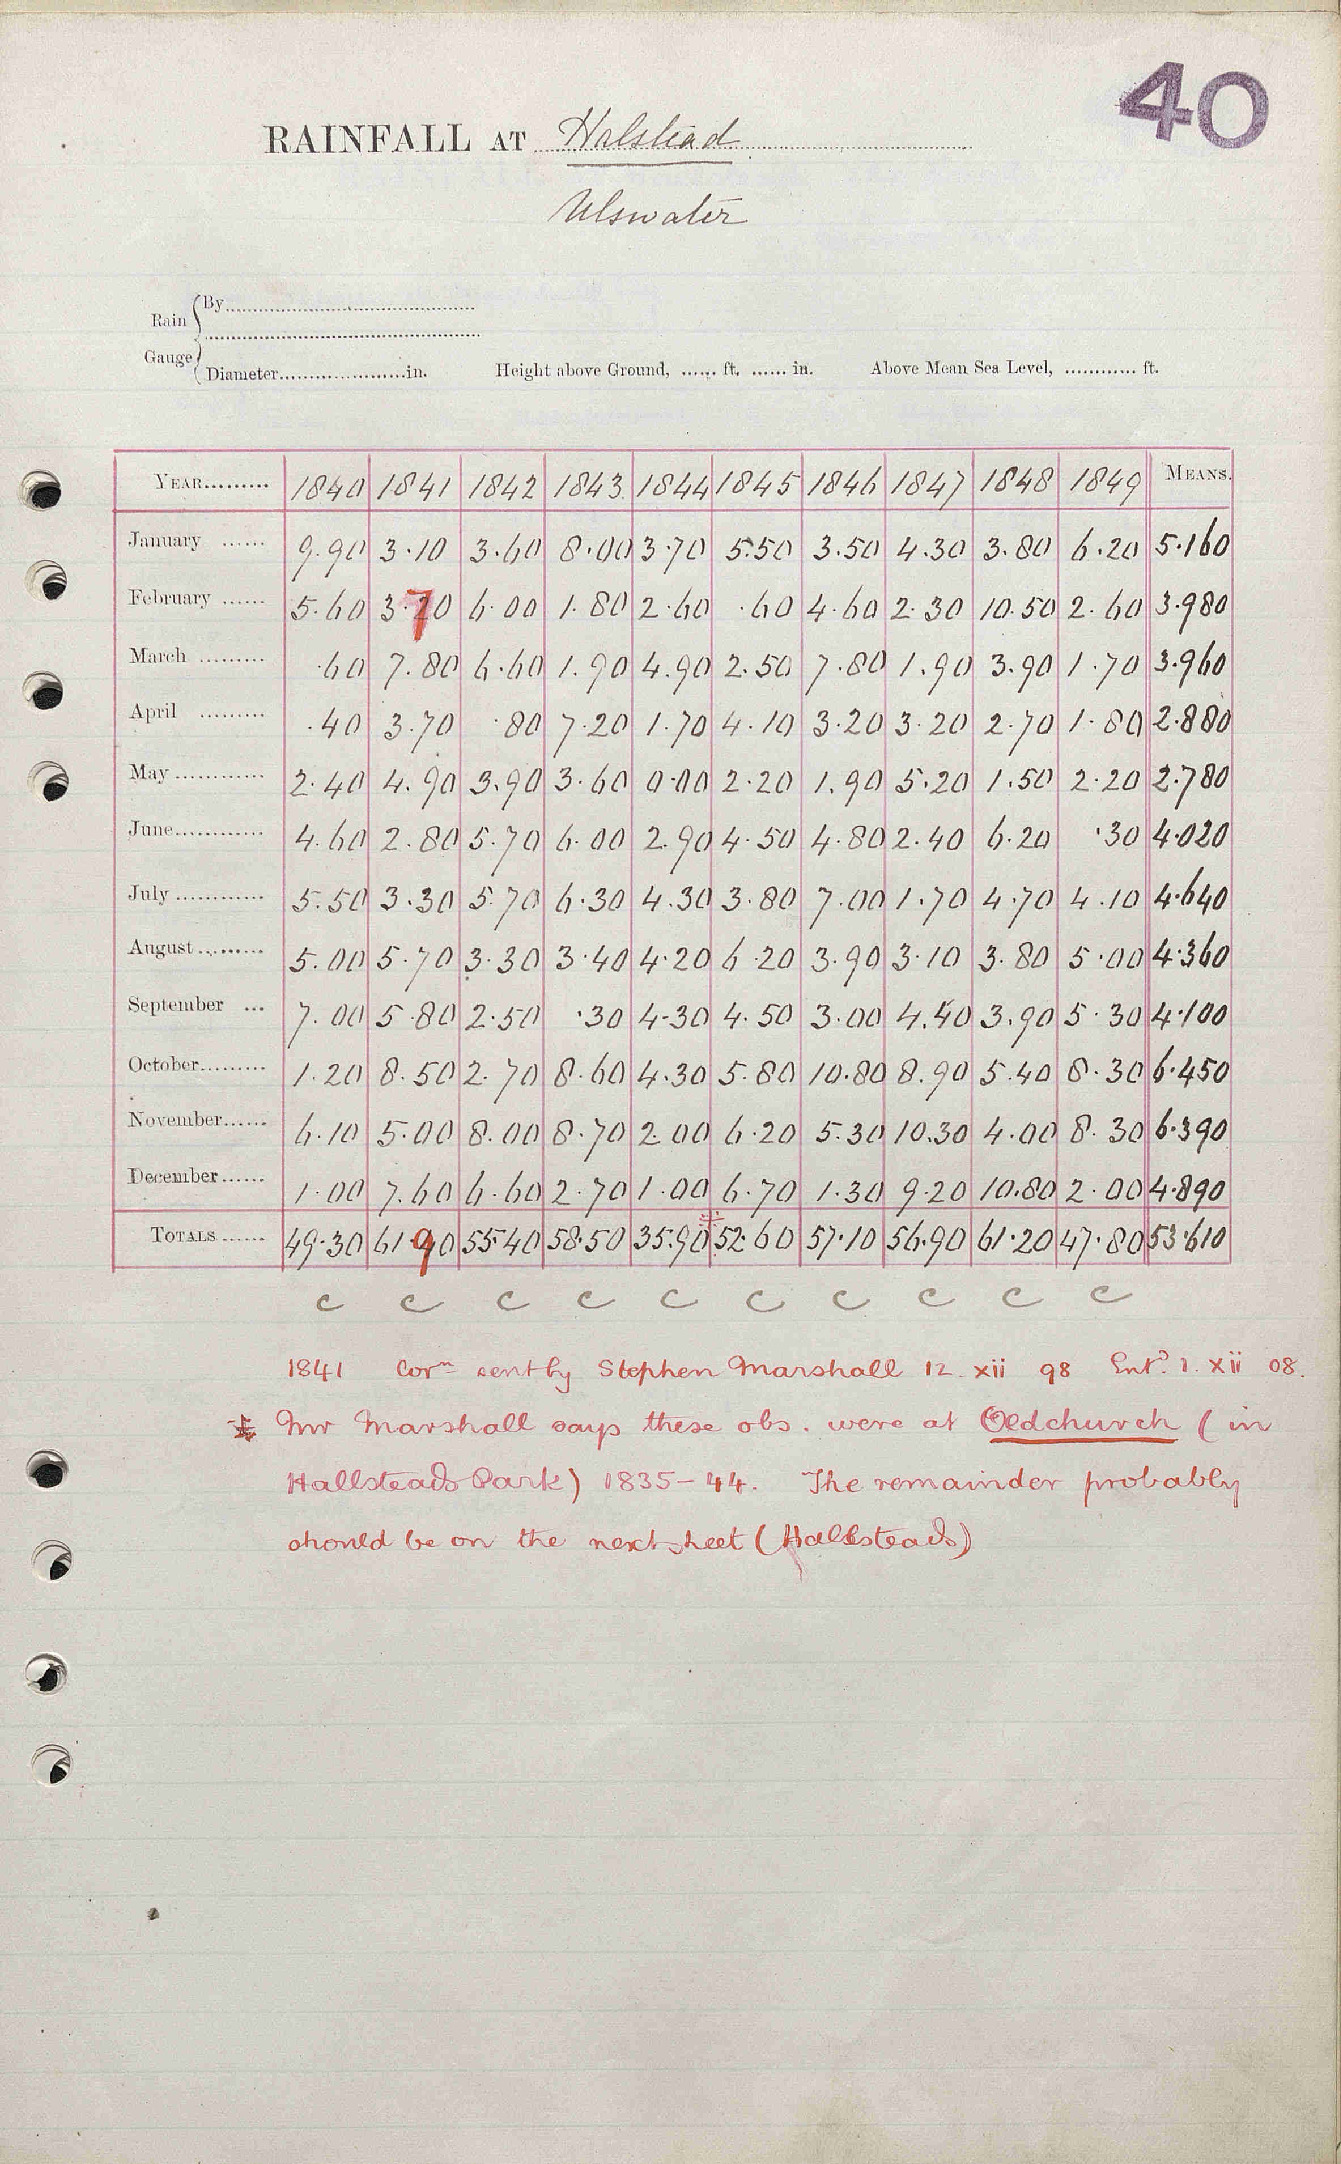 40
RAINFALL AT Halstead
Ulswater
Rain Gauge { By
Diameter in. Height above Ground, ft. in. Above Mean Sea Level, ft.
YEAR 1840 1841 1842 1843 1844 1845 1846 1847 1848 1849 MEANS.
January 9.90 3.10 3.60 8.00 3.70 5.50 3.50 4.30 3.80 6.20 5.160
February 5.60 3.70 6.00 1.80 2.60 .60 4.60 2.30 10.50 2.60 3.980
March .60 7.80 6.60 1.90 4.90 2.50 7.80 1.90 3.90 1.70 3.960
April .40 3.70 .80 7.20 1.70 4.10 3.20 3.20 2.70 1.80 2.880
May 2.40 4.90 3.90 3.60 0.00 2.20 1.90 5.20 1.50 2.20 2.780
June 4.60 2.80 5.70 6.00 2.90 4.50 4.80 2.40 6.20 .30 4.020
July 5.50 3.30 5.70 6.30 4.30 3.80 7.00 1.70 4.70 4.10 4.640
August 5.00 5.70 3.30 3.40 4.20 6.20 3.90 3.10 3.80 5.00 4.360
September 7.00 5.80 2.50 .30 4.30 4.50 3.00 4.40 3.90 5.30 4.100
October 1.20 8.50 2.70 8.60 4.30 5.80 10.80 8.90 5.40 8.30 6.450
November 6.10 5.00 8.00 8.70 2.00 6.20 5.30 10.30 4.00 8.30 6.390
December 1.00 7.60 6.60 2.70 1.00 6.70 1.30 9.20 10.80 2.00 4.890
TOTALS 49.30 61.90 55.40 58.50 35.90 * 52.60 57.10 56.90 61.20 47.80 53.610
c c c c c c c c c c
1841 Corn sent by Stephen Marshall 12. xii 98 Entd. 1. xii 08.
* Mr Marshall says these obs. were at Oldchurch (in
Hallsteads Park) 1835-44. The remainder probably
should be on the next sheet (Hallsteads)